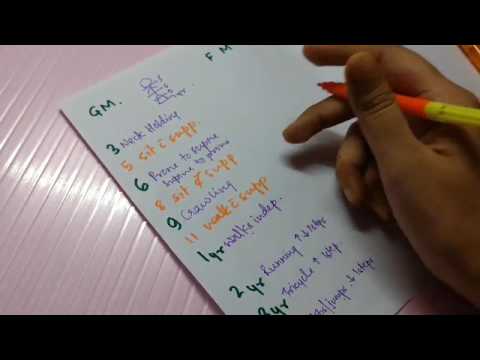 GM. F M
3 Neck Holding
5 sit c̄ supp.
6 Prone to supine
supine to prone
8 sit s̄ supp
9 Crawling
11 walk c̄ supp
1 yr walks indep.
2 yr Running ↑↓ steps
3 yr Tricycle ↑ step